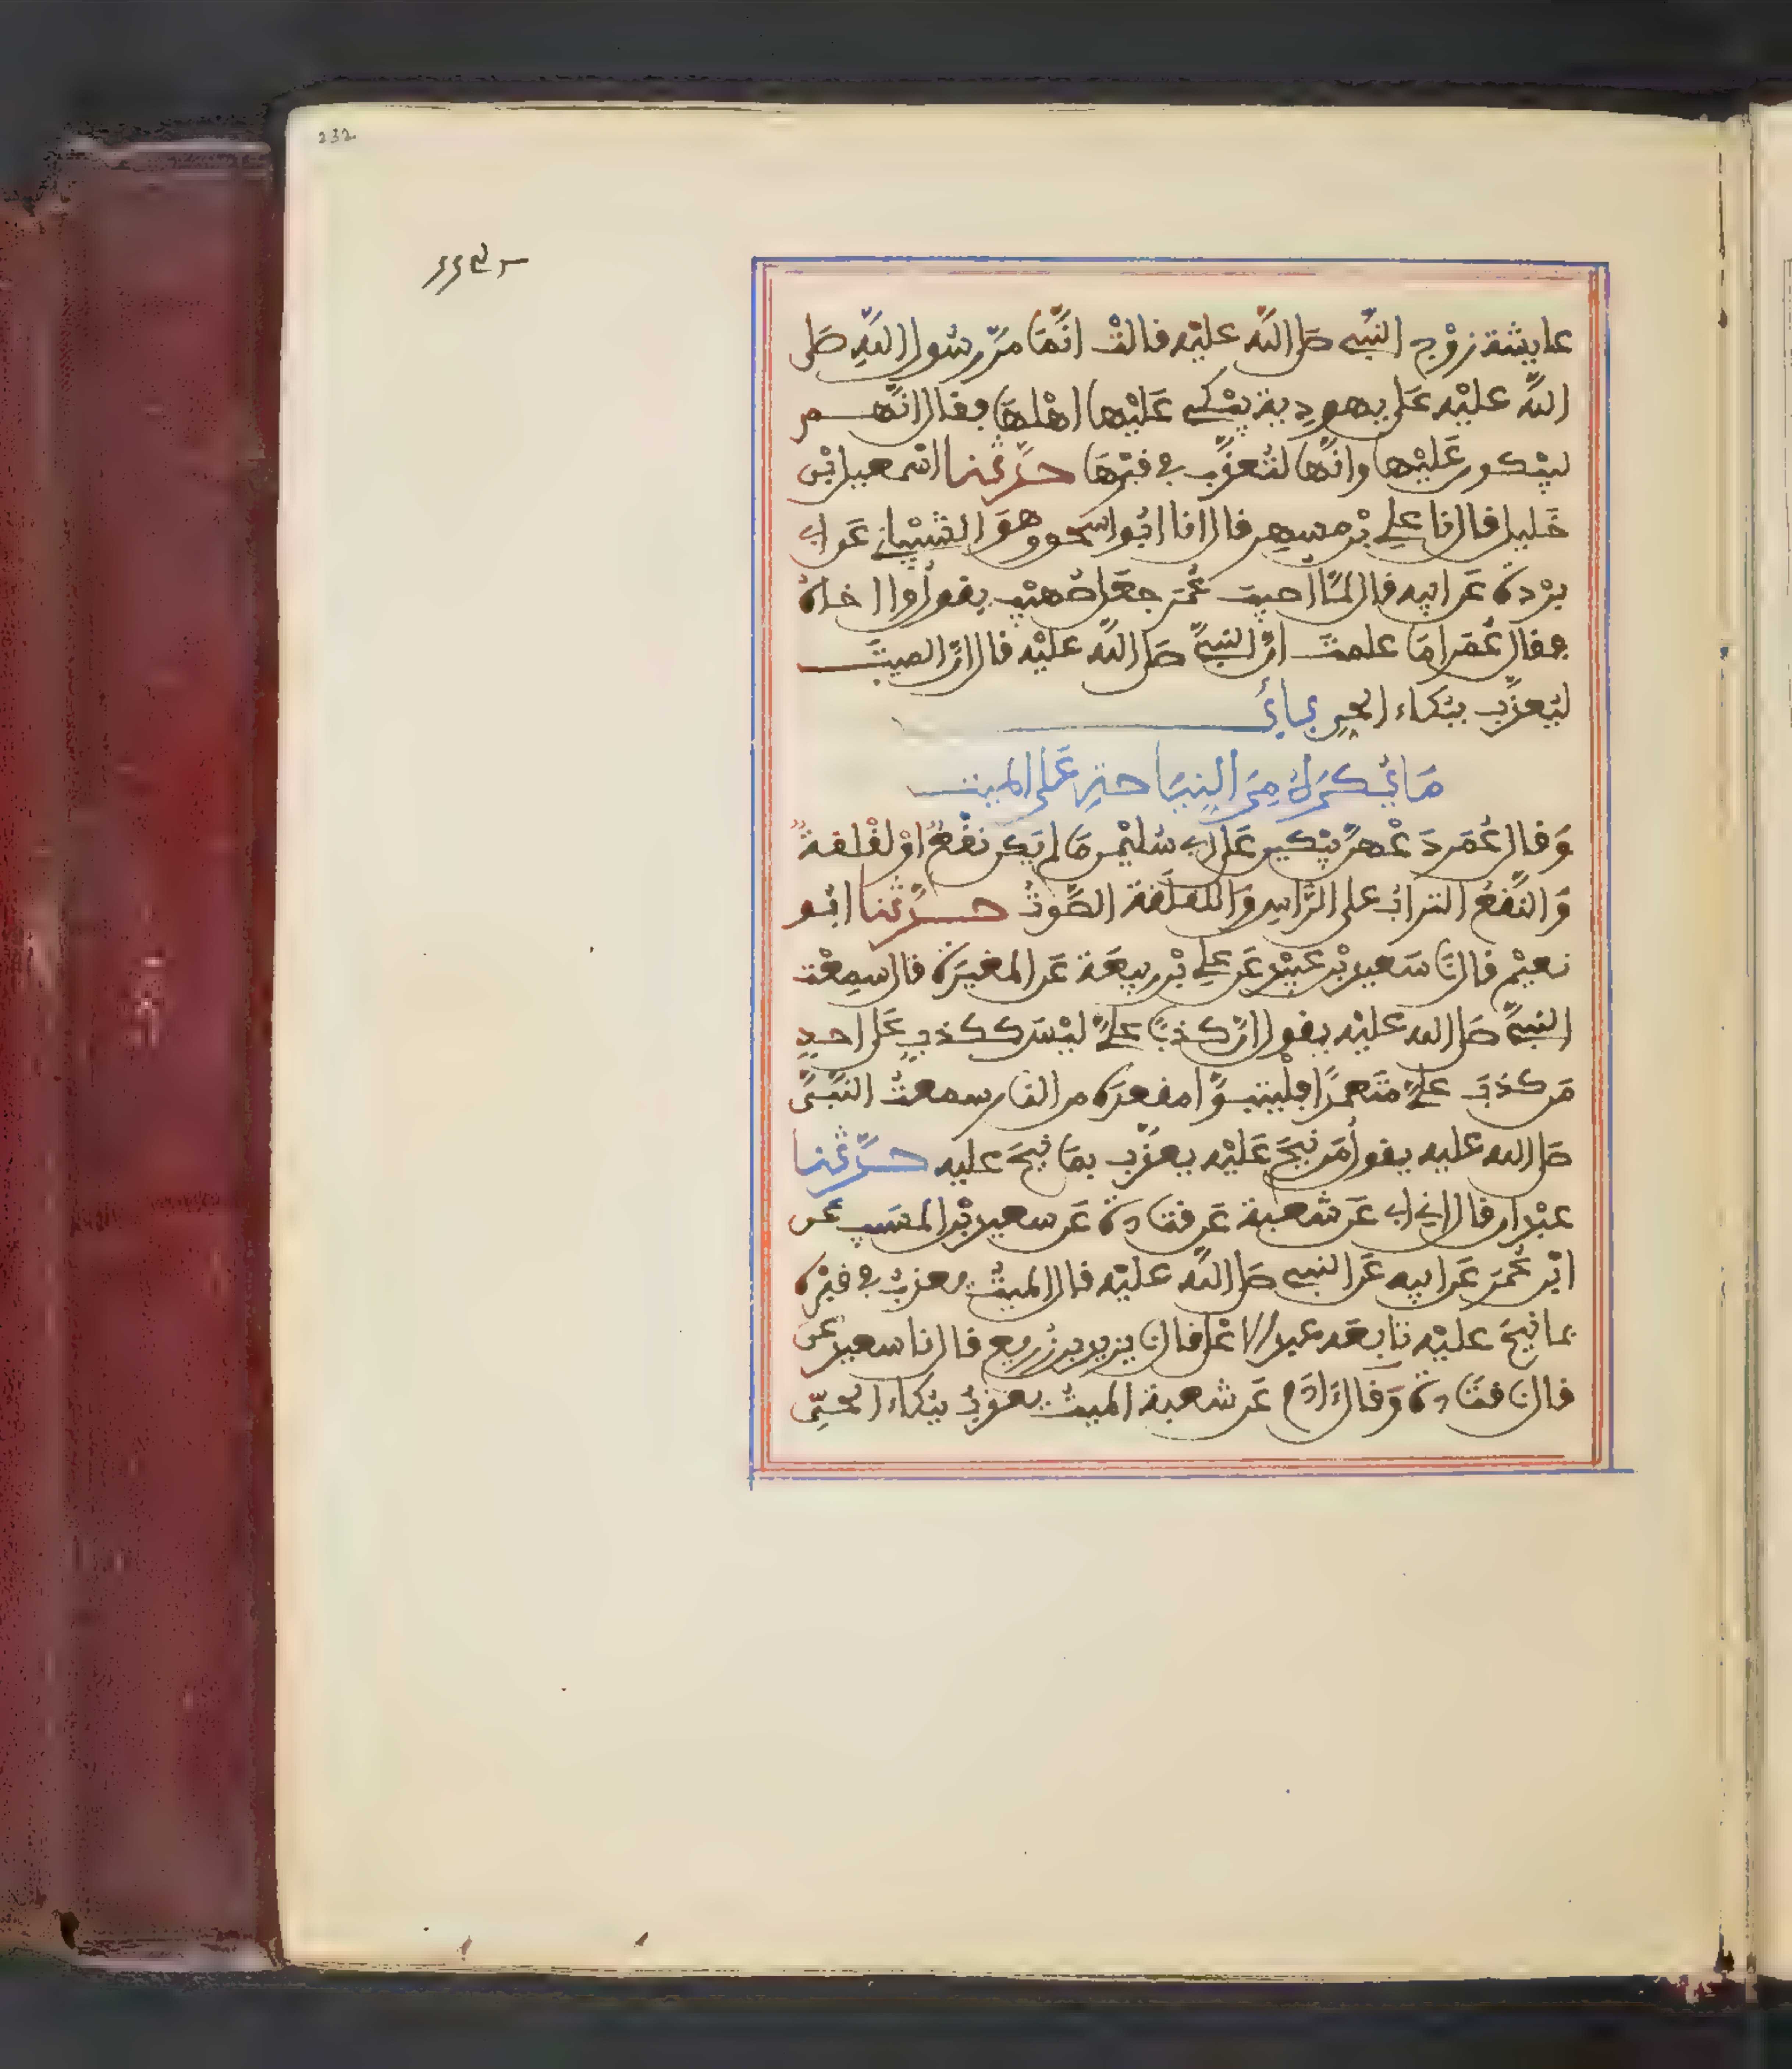 232
عايشة زوج النبي صلى الله عليه فالت انما مر رسول الله صلى
الله عليه على يهودية يبكي عليها اهلها فقال انهم
ليبكون عليها وانها لتعذب في قبرها حدثنا اسمعيل بن
خليل قال نا علي بن مسهر قال انا ابو اسحق وهو الشيباني عن ابي
بردة عن ابيه قال لما اصيب عمر جعل صهيب يقول وا اخاه
فقال عمر اما علمت ان النبي صلى الله عليه قال ان الميت
ليعذب ببكاء الحي باب
ما يكره من النياحة على الميت
وقال عمر دعهن يبكين على ابي سليمن ما لم يكن نقع او لقلقة
والنقع التراب على الراس واللقلقة الصوت حدثنا ابو
نعيم قال نا سعيد بن عبيد عن علي بن ربيعة عن المغيرة قال سمعت
النبي صلى الله عليه يقول ان كذبا علي ليس ككذب على احد
من كذب علي متعمدا فليتبوا مقعده من النار سمعت النبي
صلى الله عليه يقول من نيح عليه يعذب بما نيح عليه حدثنا
عبدان قال اني ابي عن شعبة عن قتادة عن سعيد بن المسيب عن
ابن عمر عن ابيه عن النبي صلى الله عليه قال الميت يعذب في قبره
بما نيح عليه تابعه عبد الاعلى قال نا يزيد بن زريع قال نا سعيد عن
قال نا قتادة وقال ادم عن شعبة الميت يعذب ببكاء الحي